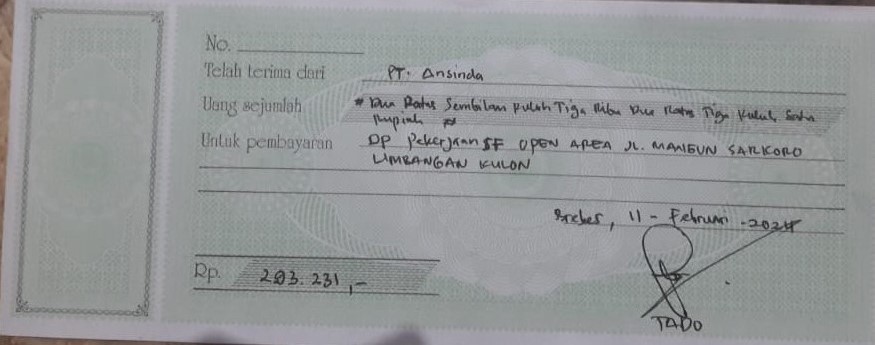 No.
Telah terima dari PT. Ansinda
Uang sejumlah # Dua Ratus Sembilan Puluh Tiga Ribu Dua Ratus Tiga Puluh Satu
Rupiah #
Untuk pembayaran DP Pekerjaan SF OPEN AREA JL. MANGUN SARKORO
LIMBANGAN KULON
Brebes, 11 - Februari - 2024
Rp. 293.231,-
TADO